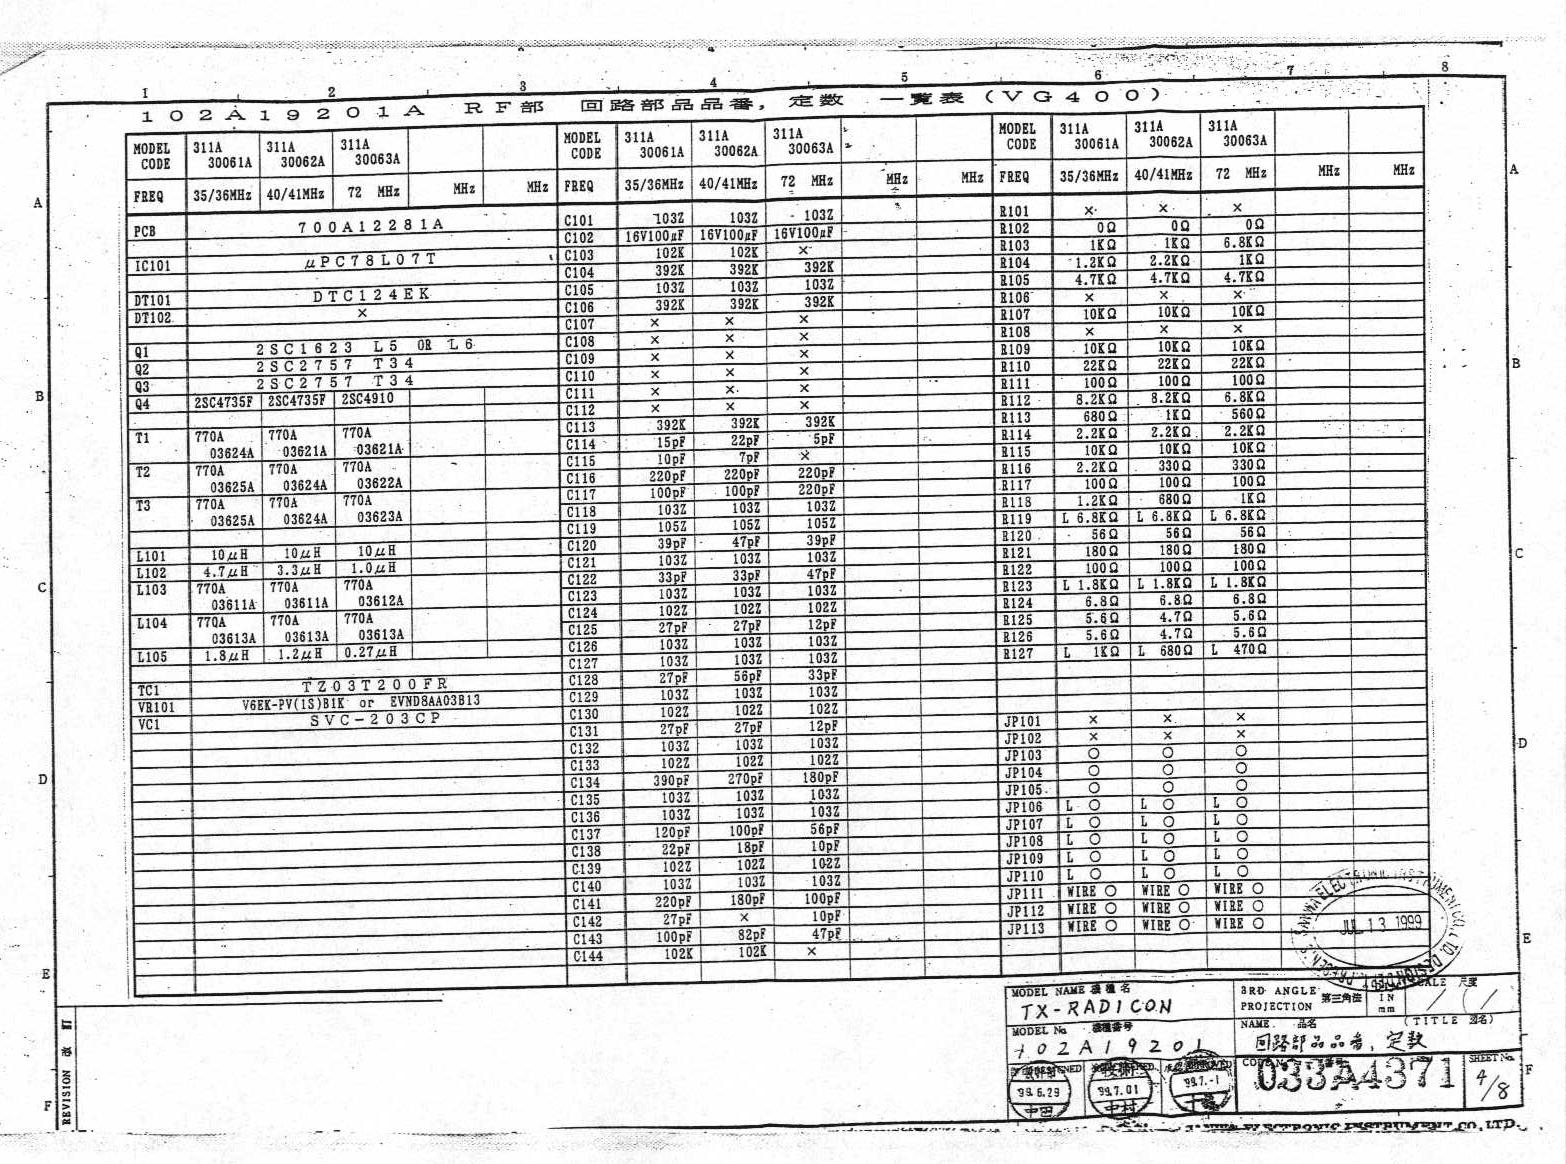 1 2 3 4 5 6 7 8
102A19201A RF部 回路部品品番，定数 一覧表(VG400)
MODEL CODE 311A 30061A 311A 30062A 311A 30063A
FREQ 35/36MHz 40/41MHz 72 MHz MHz MHz
PCB 700A12281A
IC101 μPC78L07T
DT101 DTC124EK
DT102 ×
Q1 2SC1623 L5 OR L6
Q2 2SC2757 T34
Q3 2SC2757 T34
Q4 2SC4735F 2SC4735F 2SC4910
T1 770A 03624A 770A 03621A 770A 03621A
T2 770A 03625A 770A 03624A 770A 03622A
T3 770A 03625A 770A 03624A 770A 03623A
L101 10μH 10μH 10μH
L102 4.7μH 3.3μH 1.0μH
L103 770A 03611A 770A 03611A 770A 03612A
L104 770A 03613A 770A 03613A 770A 03613A
L105 1.8μH 1.2μH 0.27μH
TC1 TZ03T200FR
VR101 V6EK-PV(1S)B1K or EVND8AA03B13
VC1 SVC-203CP
MODEL CODE 311A 30061A 311A 30062A 311A 30063A
FREQ 35/36MHz 40/41MHz 72 MHz MHz MHz
C101 103Z 103Z 103Z
C102 16V100μF 16V100μF 16V100μF
C103 102K 102K ×
C104 392K 392K 392K
C105 103Z 103Z 103Z
C106 392K 392K 392K
C107 × × ×
C108 × × ×
C109 × × ×
C110 × × ×
C111 × × ×
C112 × × ×
C113 392K 392K 392K
C114 15pF 22pF 5pF
C115 10pF 7pF ×
C116 220pF 220pF 220pF
C117 100pF 100pF 220pF
C118 103Z 103Z 103Z
C119 105Z 105Z 105Z
C120 39pF 47pF 39pF
C121 103Z 103Z 103Z
C122 33pF 33pF 47pF
C123 103Z 103Z 103Z
C124 102Z 102Z 102Z
C125 27pF 27pF 12pF
C126 103Z 103Z 103Z
C127 103Z 103Z 103Z
C128 27pF 56pF 33pF
C129 103Z 103Z 103Z
C130 102Z 102Z 102Z
C131 27pF 27pF 12pF
C132 103Z 103Z 103Z
C133 102Z 102Z 102Z
C134 390pF 270pF 180pF
C135 103Z 103Z 103Z
C136 103Z 103Z 103Z
C137 120pF 100pF 56pF
C138 22pF 18pF 10pF
C139 102Z 102Z 102Z
C140 103Z 103Z 103Z
C141 220pF 180pF 100pF
C142 27pF × 10pF
C143 100pF 82pF 47pF
C144 102K 102K ×
MODEL CODE 311A 30061A 311A 30062A 311A 30063A
FREQ 35/36MHz 40/41MHz 72 MHz MHz MHz
R101 × × ×
R102 0Ω 0Ω 0Ω
R103 1KΩ 1KΩ 6.8KΩ
R104 1.2KΩ 2.2KΩ 1KΩ
R105 4.7KΩ 4.7KΩ 4.7KΩ
R106 × × ×
R107 10KΩ 10KΩ 10KΩ
R108 × × ×
R109 10KΩ 10KΩ 10KΩ
R110 22KΩ 22KΩ 22KΩ
R111 100Ω 100Ω 100Ω
R112 8.2KΩ 8.2KΩ 6.8KΩ
R113 680Ω 1KΩ 560Ω
R114 2.2KΩ 2.2KΩ 2.2KΩ
R115 10KΩ 10KΩ 10KΩ
R116 2.2KΩ 330Ω 330Ω
R117 100Ω 100Ω 100Ω
R118 1.2KΩ 680Ω 1KΩ
R119 L 6.8KΩ L 6.8KΩ L 6.8KΩ
R120 56Ω 56Ω 56Ω
R121 180Ω 180Ω 180Ω
R122 100Ω 100Ω 100Ω
R123 L 1.8KΩ L 1.8KΩ L 1.8KΩ
R124 6.8Ω 6.8Ω 6.8Ω
R125 5.6Ω 4.7Ω 5.6Ω
R126 5.6Ω 4.7Ω 5.6Ω
R127 L 1KΩ L 680Ω L 470Ω
JP101 × × ×
JP102 × × ×
JP103 ○ ○ ○
JP104 ○ ○ ○
JP105 ○ ○ ○
JP106 L ○ L ○ L ○
JP107 L ○ L ○ L ○
JP108 L ○ L ○ L ○
JP109 L ○ L ○ L ○
JP110 L ○ L ○ L ○
JP111 WIRE ○ WIRE ○ WIRE ○
JP112 WIRE ○ WIRE ○ WIRE ○
JP113 WIRE ○ WIRE ○ WIRE ○
A B C D E F
A B C D E F
JUL 13 1999
REVISION 改訂
MODEL NAME 機種名
TX-RADICON
MODEL No. 機種番号
102A19201
3RD ANGLE PROJECTION 第三角法
IN mm
SCALE 尺度
1/1
NAME 品名
(TITLE 図名)
回路部品品番，定数
033A4371
SHEET No.
4/8
99.6.29
中田
技術
99.7.01
中村
99.7.-1
ELECTRONIC INSTRUMENT CO., LTD.